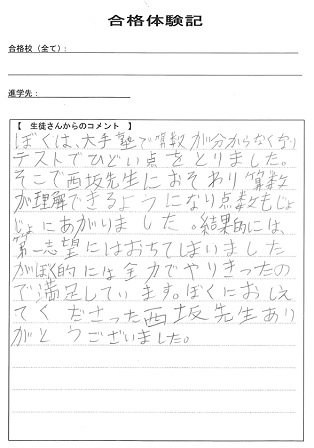 合格体験記
合格校（全て）：
進学先：
【　生徒さんからのコメント　】
ぼくは、大手塾で算数が分からなくなり
テストでひどい点をとりました。
そこで西坂先生におそわり算数
が理解できるようになり点数もじょ
じょにあがりました。結果的には、
第一志望にはおちてしまいました
がぼく的には全力でやりきったの
で満足しています。ぼくにおしえ
てくださった西坂先生あり
がとうございました。